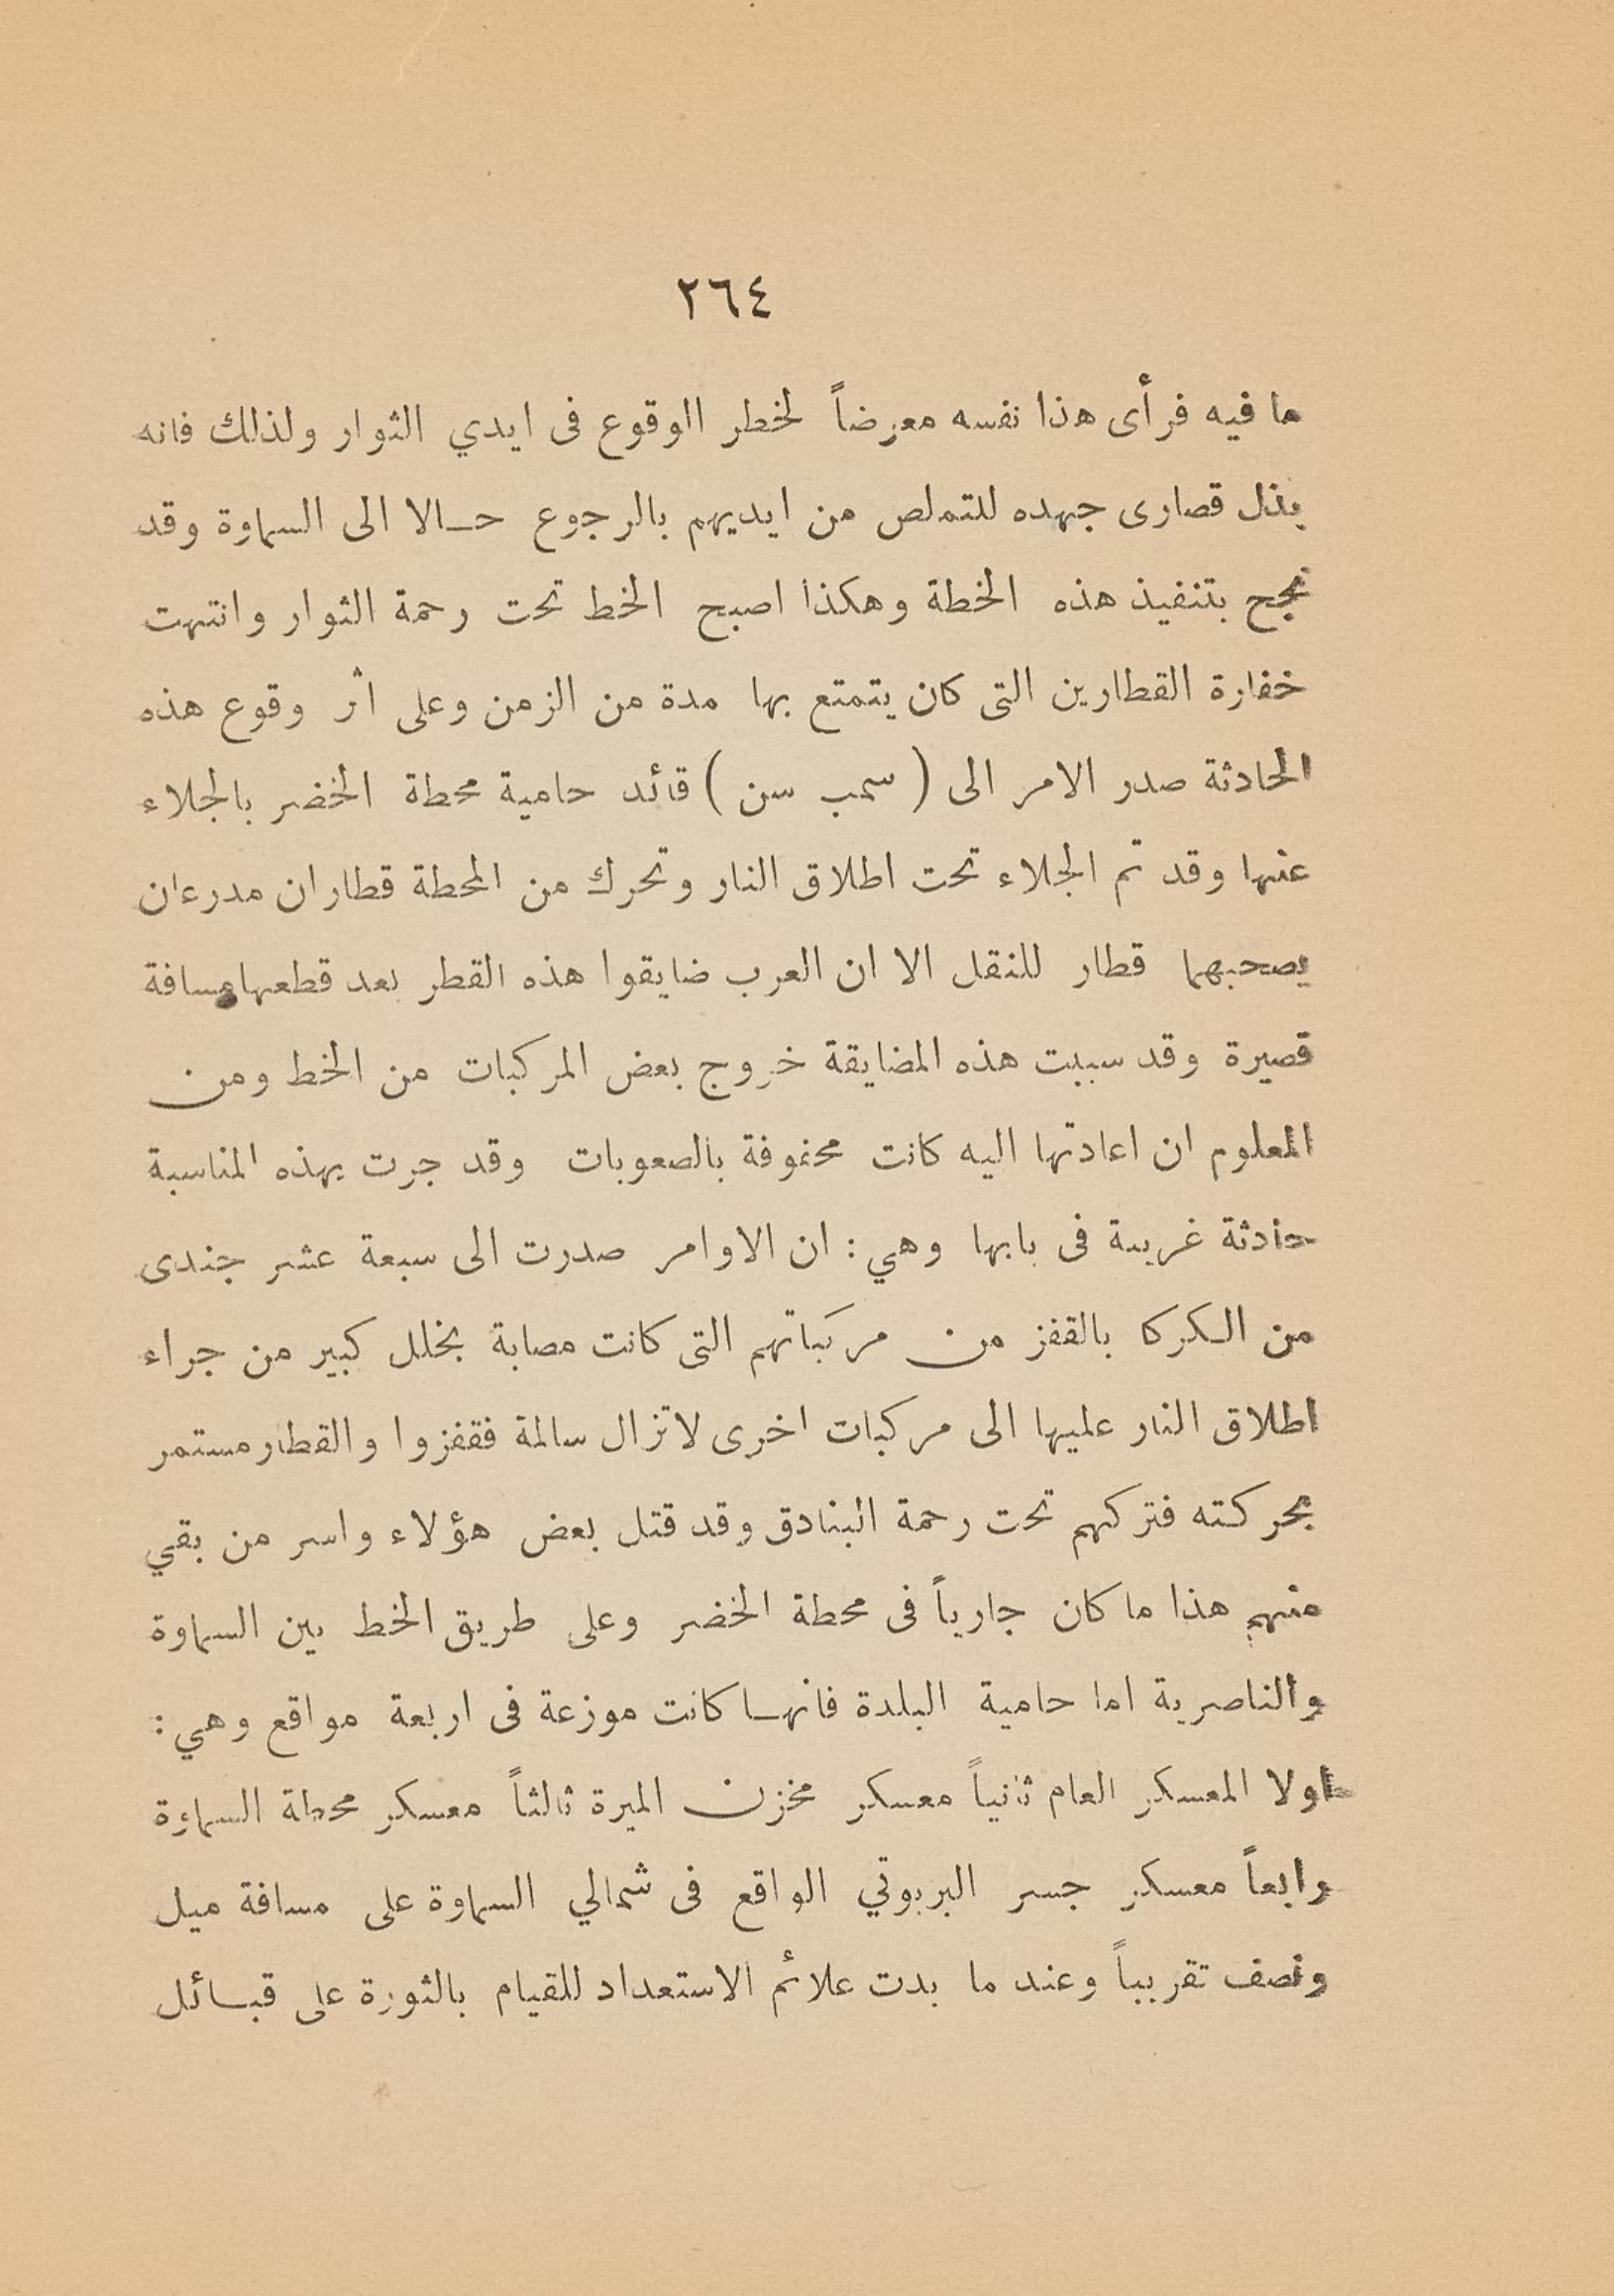 ٢٦٤
ما فيه فرأى هذا نفسه معرضاً لخطر الوقوع فى ايدي الثوار ولذلك فانه
بذل قصارى جهده للتملص من ايديهم بالرجوع حــالا الى السماوة وقد
نجح بتنفيذ هذه الخطة وهكذا اصبح الخط تحت رحمة الثوار وانتهت
خفارة القطارين التى كان يتمتع بها مدة من الزمن وعلى اثر وقوع هذه
الحادثة صدر الامر الى ( سمب سن ) قائد حامية محطة الخضر بالجلاء
عنها وقد تم الجلاء تحت اطلاق النار وتحرك من المحطة قطاران مدرعان
يصحبهما قطار للنقل الا ان العرب ضايقوا هذه القطر بعد قطعها مسافة
قصيرة وقد سببت هذه المضايقة خروج بعض المركبات من الخط ومن
المعلوم ان اعادتها اليه كانت محفوفة بالصعوبات وقد جرت بهذه المناسبة
حادثة غريبة فى بابها وهي : ان الاوامر صدرت الى سبعة عشر جندى
من الكركا بالقفز من مركباتهم التى كانت مصابة بخلل كبير من جراء
اطلاق النار عليها الى مركبات اخرى لا تزال سالمة فقفزوا والقطار مستمر
بحركته فتركهم تحت رحمة البنادق وقد قتل بعض هؤلاء واسر من بقي
منهم هذا ما كان جارياً فى محطة الخضر وعلى طريق الخط بين السماوة
والناصرية اما حامية البلدة فانهــا كانت موزعة فى اربعة مواقع وهي :
اولا المعسكر العام ثانياً معسكر مخزن الميرة ثالثاً معسكر محطة السماوة
رابعاً معسكر جسر البربوتي الواقع فى شمالي السماوة على مسافة ميل
ونصف تقريباً وعند ما بدت علائم الاستعداد للقيام بالثورة على قبــائل